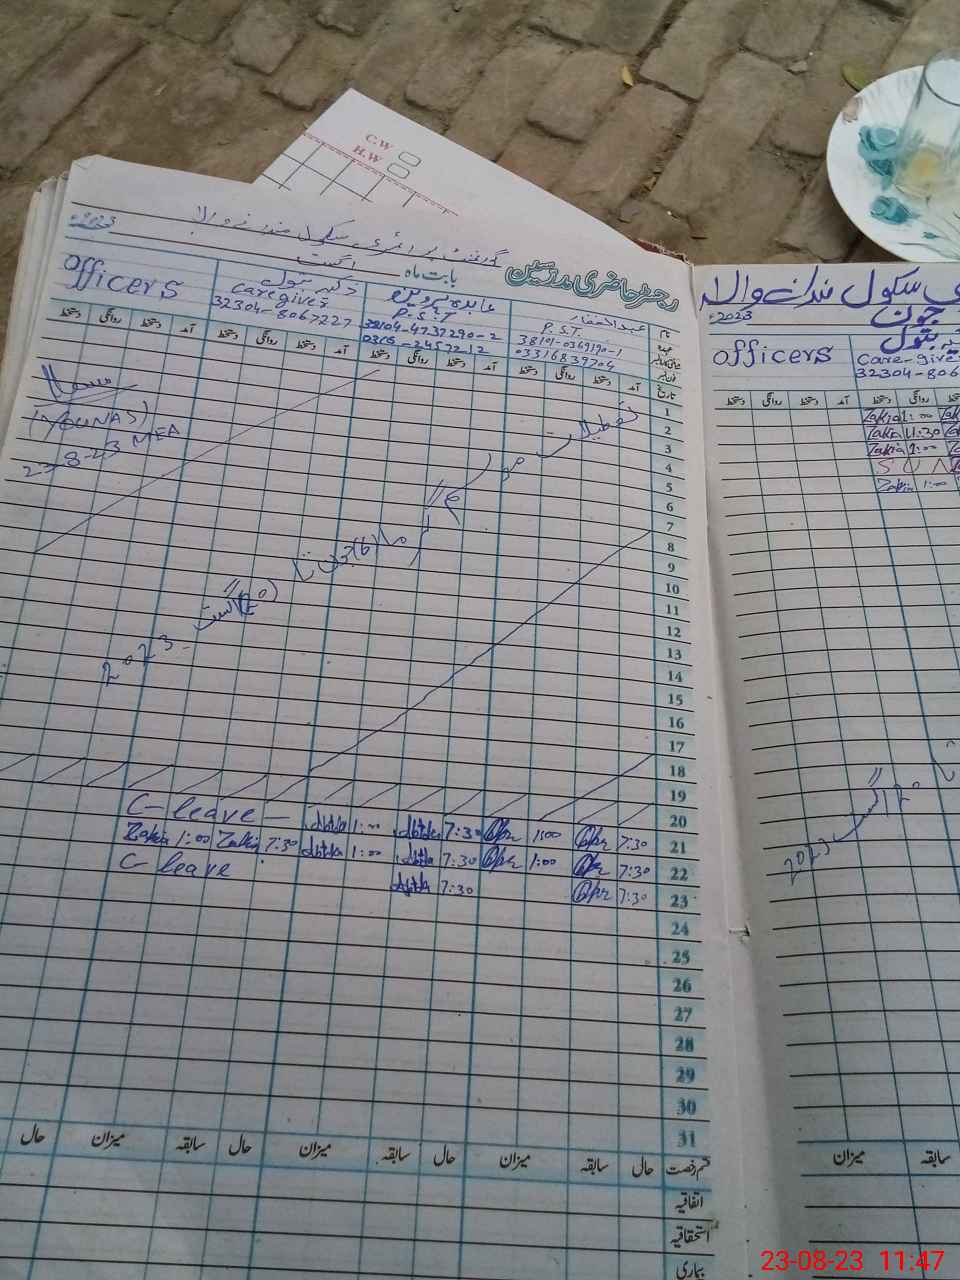 C.W
H.W
گورنمنٹ پرائمری سکول
2023ء
رجسٹر حاضری مدرسین
بابت ماہ اگست
نام
عبدالغفار
عابدہ پروین
officers
P.S.T.
P.S.T
Caregiver
38101-0369190-1
32304-4737290-2
32304-8067227
03316839704
0316-2457212
تاریخ
آمد دستخط روانگی دستخط آمد دستخط روانگی دستخط آمد دستخط روانگی دستخط آمد دستخط روانگی دستخط
1
2
3
4
5
6
7
8
9
10
11
12
13
14
15
16
17
18
19
20
21 7:30 1:00 7:30 1:00 C-leave
22 7:30 1:00 7:30 1:00 7:30 Zakia 1:00 Zakia
23 7:30 7:30 C-leave
24
25
26
27
28
29
30
31
تعطیلات موسم گرما (6) جون تا (20) اگست 2023
(YOUNAS)
23-8-23 MEA
قسم رخصت حال سابقہ میزان حال سابقہ میزان حال سابقہ میزان حال
اتفاقیہ
استحقاقیہ
بیماری
سکول
جون
2023ء
بتول
officers
Care-give
32304-806
آمد دستخط روانگی دستخط
Zakia 1:00
Zakia 11:30
Zakia 1:00
S U N
Zakia 1:00
اگست 2023
سابقہ میزان
23-08-23 11:47